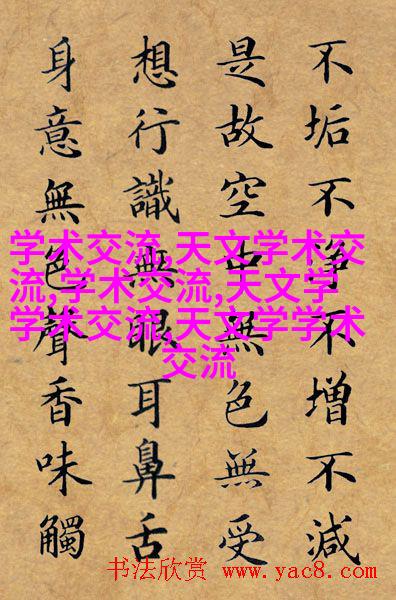 不垢不淨不增不減
是故空中無色無受
想行識無眼耳鼻舌
身意無色聲香味觸
学术交流,天文学术交
流,学术交流,天文学
学术交流,天文学学术
交流
书法欣赏 www.yac8.com